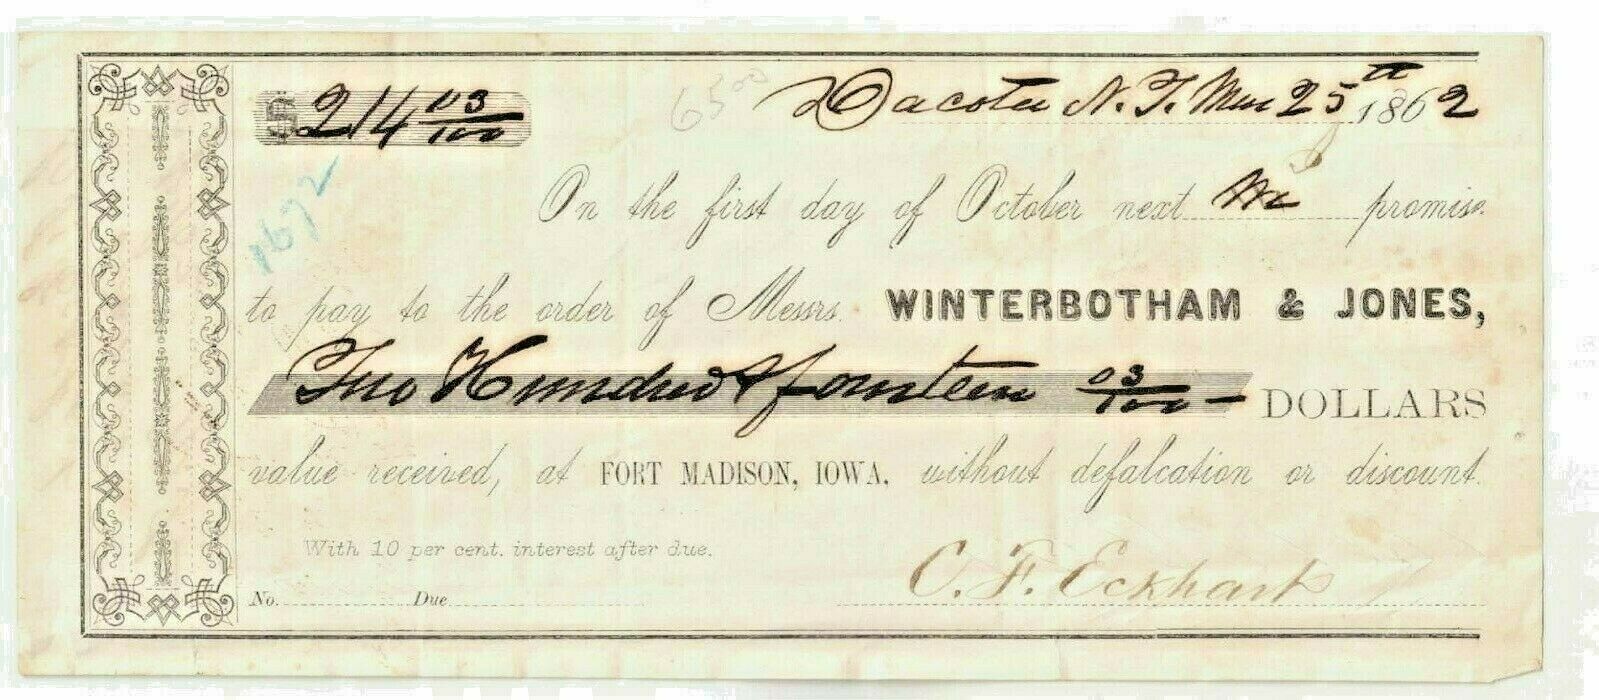 $214 03/100
6500
Dacota N.T. Mar 25th 1862
1692
On the first day of October next promise
to pay to the order of Messrs. WINTERBOTHAM & JONES,
Two Hundred & fourteen 03/100 DOLLARS
value received, at FORT MADISON, IOWA, without defalcation or discount.
With 10 per cent. interest after due.
C. F. Eckhart
No. Due